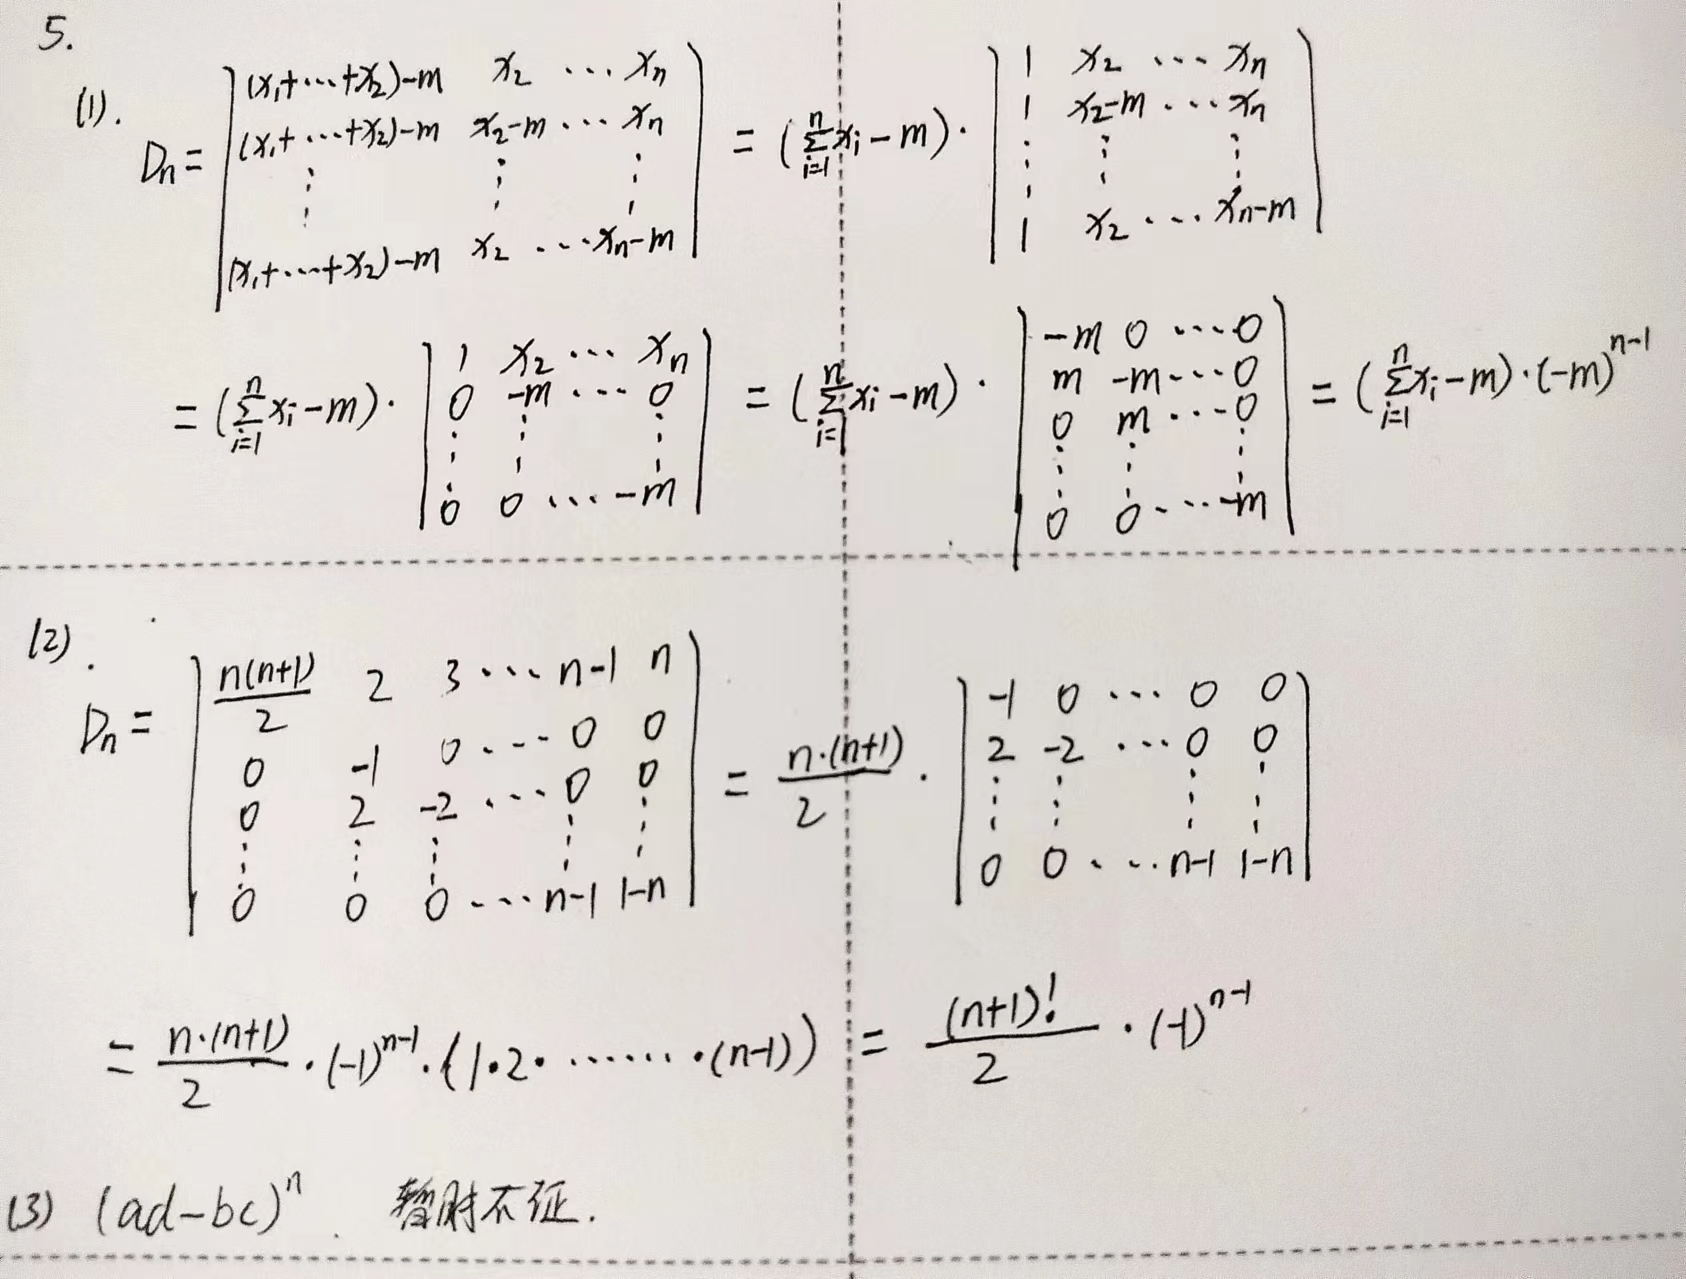 5.
(1). Dn = | (x₁+⋯+x₂)-m x₂ ⋯ xn |
| (x₁+⋯+x₂)-m x₂-m ⋯ xn |
| ⋮ ⋮ ⋮ |
| (x₁+⋯+x₂)-m x₂ ⋯ xn-m |
= (∑ⁿᵢ₌₁ xᵢ - m) · | 1 x₂ ⋯ xn |
| 1 x₂-m ⋯ xn |
| ⋮ ⋮ ⋮ |
| 1 x₂ ⋯ xn-m |
= (∑ⁿᵢ₌₁ xᵢ - m) · | 1 x₂ ⋯ xn |
| 0 -m ⋯ 0 |
| ⋮ ⋮ ⋮ |
| 0 0 ⋯ -m |
= (∑ⁿᵢ₌₁ xᵢ - m) · | -m 0 ⋯ 0 |
| m -m ⋯ 0 |
| 0 m ⋯ 0 |
| ⋮ ⋮ ⋮ |
| 0 0 ⋯ -m |
= (∑ⁿᵢ₌₁ xᵢ - m) · (-m)ⁿ⁻¹
(2). Dn = | n(n+1)/2 2 3 ⋯ n-1 n |
| 0 -1 0 ⋯ 0 0 |
| 0 2 -2 ⋯ 0 0 |
| ⋮ ⋮ ⋮ ⋮ ⋮ |
| 0 0 0 ⋯ n-1 1-n |
= n·(n+1)/2 · | -1 0 ⋯ 0 0 |
| 2 -2 ⋯ 0 0 |
| ⋮ ⋮ ⋮ ⋮ |
| 0 0 ⋯ n-1 1-n |
= n·(n+1)/2 · (-1)ⁿ⁻¹ · (1·2·⋯⋯·(n-1)) = (n+1)!/2 · (-1)ⁿ⁻¹
(3) (ad-bc)ⁿ. 暂时不证.